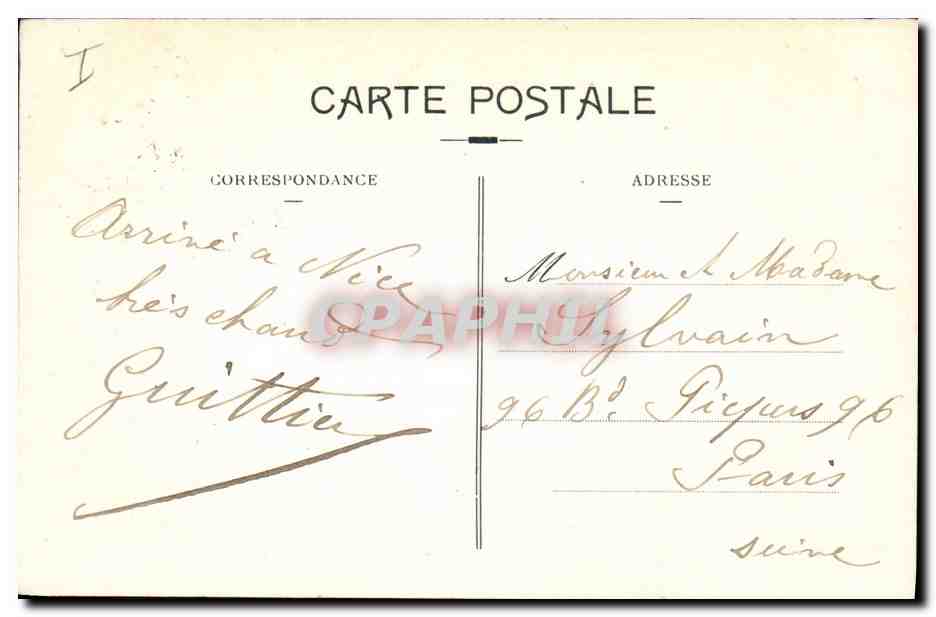 I
CARTE POSTALE
CORRESPONDANCE
ADRESSE
Arrivé a Nice
très chaud
Guittier
Monsieur et Madame
Sylvain
96 Bd. Picpus 96
Paris
Seine
CPAPHIL